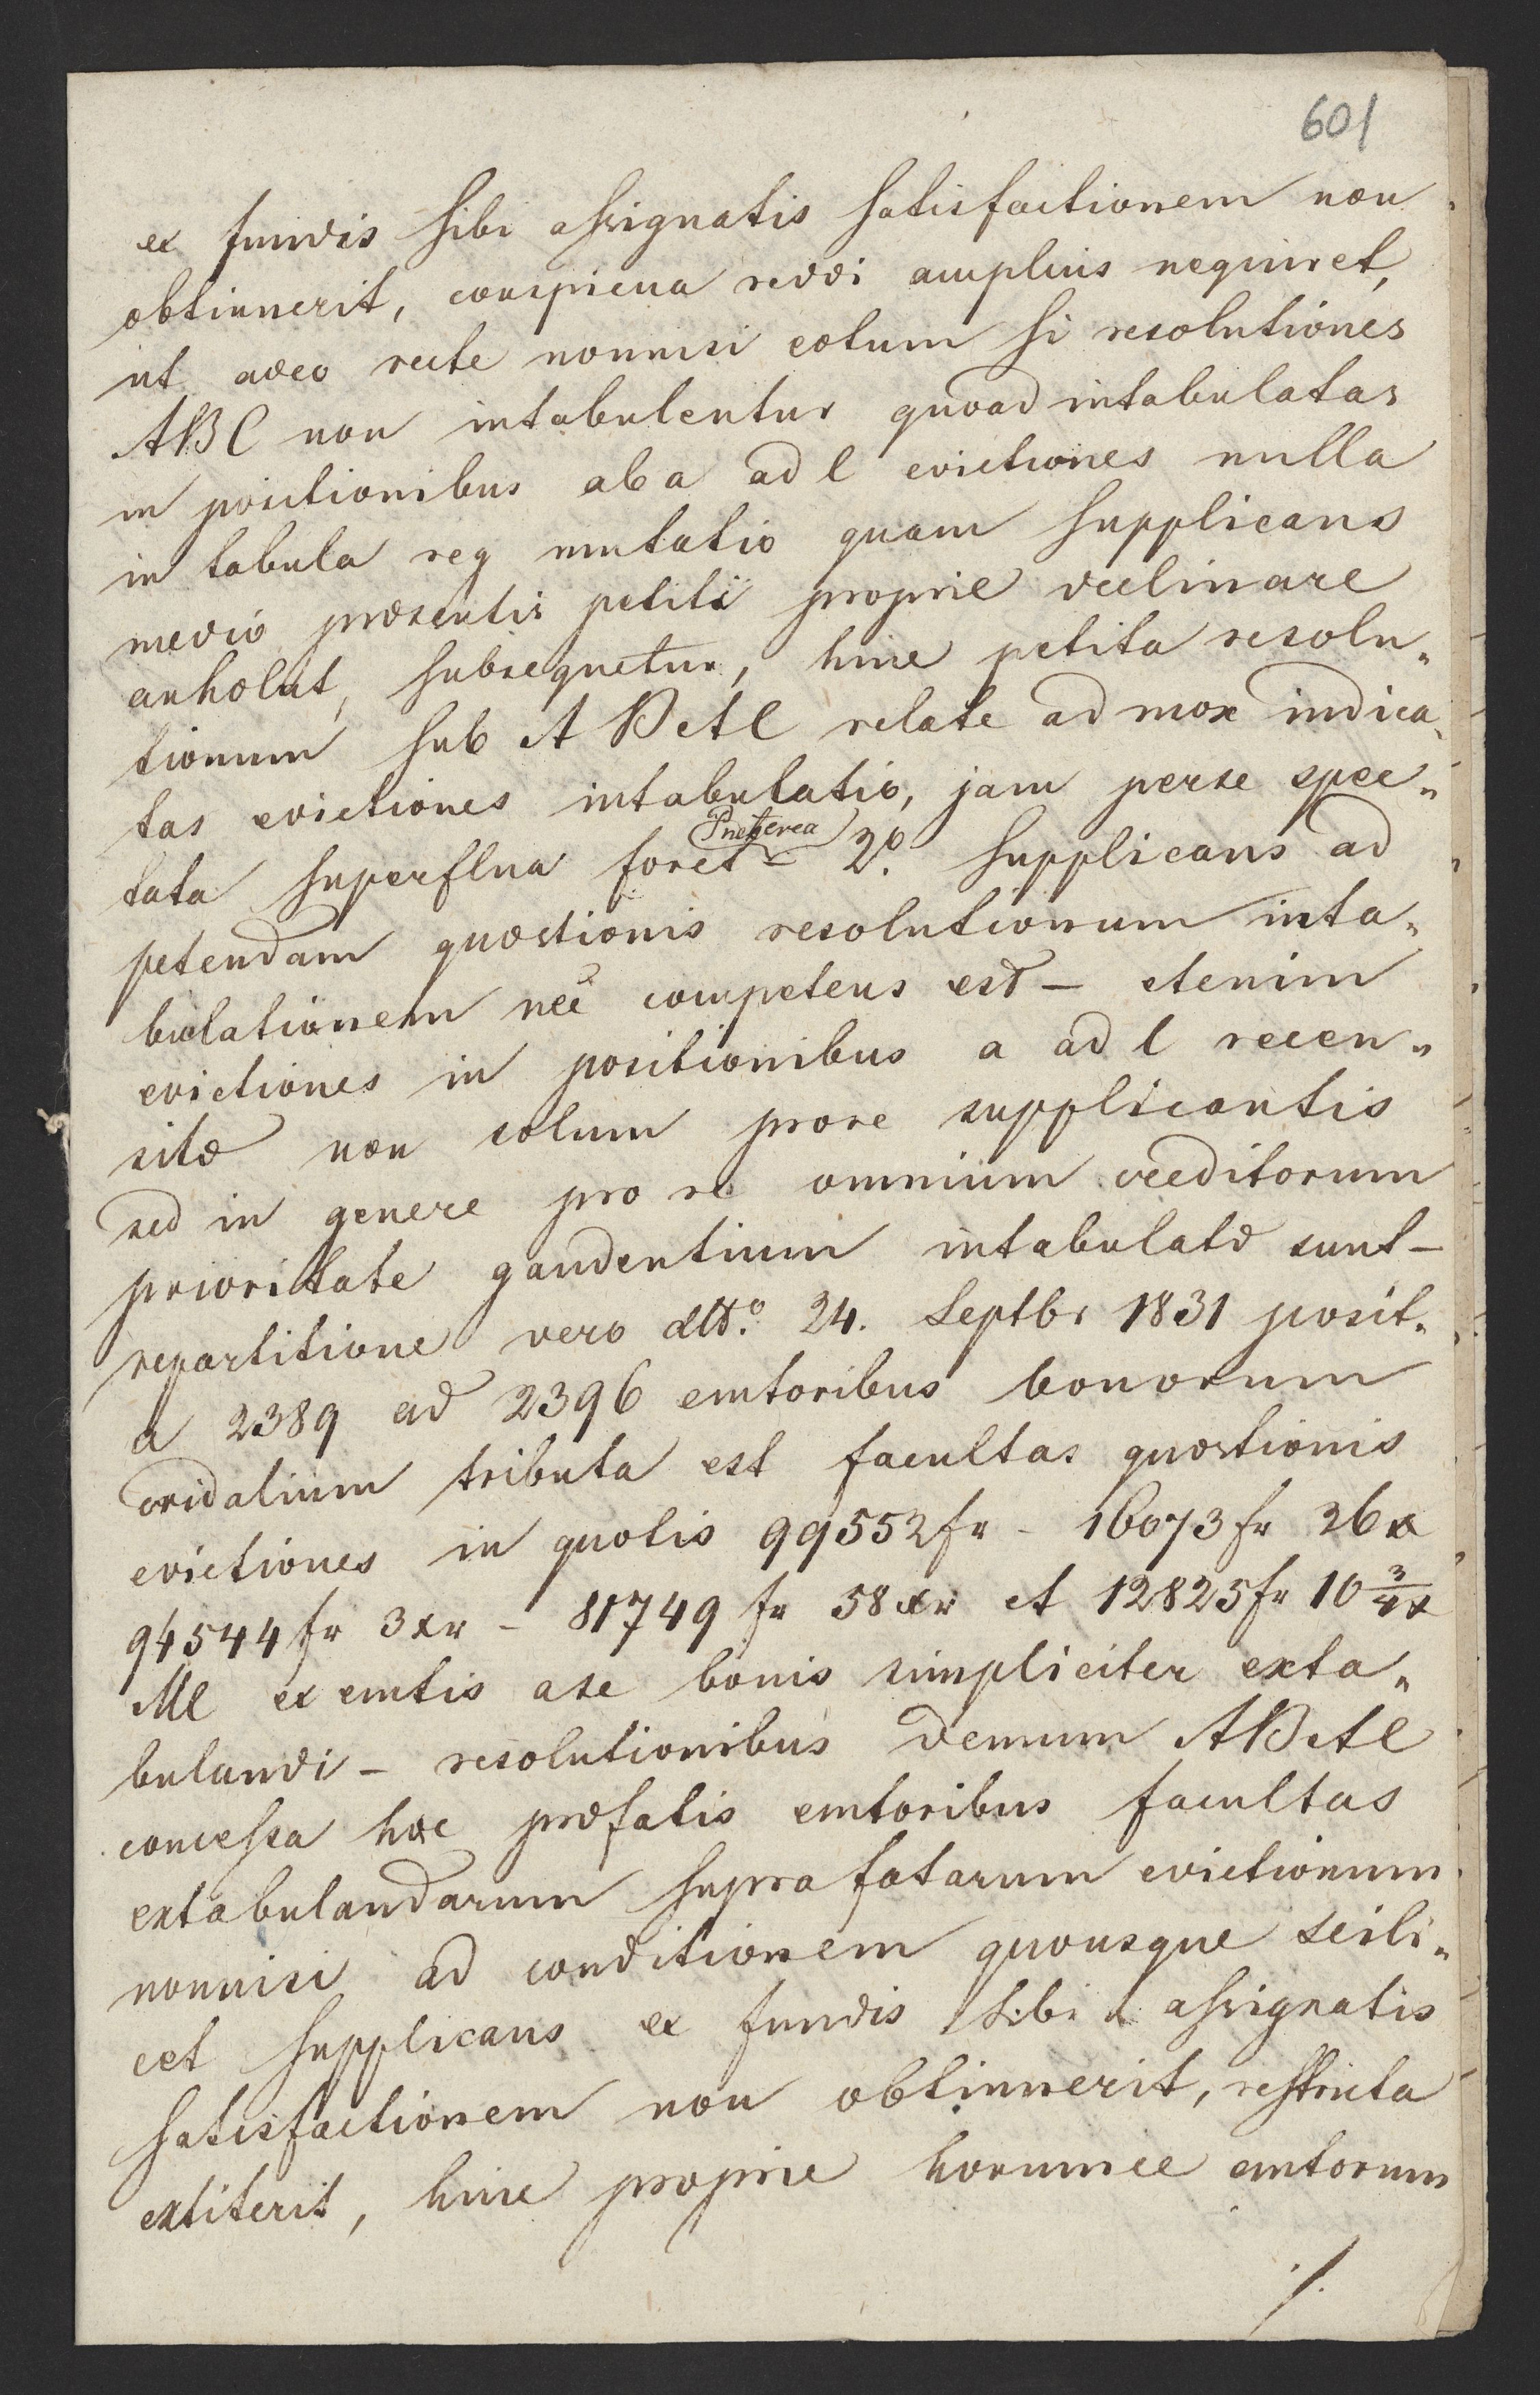 601
ex fundis sibi assignatis satisfactionem non
obtinuerit, conspicua reddi amplius nequiret,
ut adeo recte nonnisi eotum si resolutiones
ABC non intabulentur quoad intabulatas
in positionibus ab a ad l evictiones nulla
in tabula reg mutatio quam supplicans
medio præsentis petiti proprie declinare
anholat, subsequetur, hinc petita resolu„
tionum sub A B et C relate ad mox indica„
tas evictiones intabulatio, jam perse spec„
Præterea
tata superflua foret – 2º. Supplicans ad
petendam quæstionis resolutionum inta„
bulationem nec competens est – etenim
evictiones in positionibus a ad l recen„
sitæ non solum prore supplicantis
sed in genere pro re omnium creditorum
prioritate gaudentium intabulatæ sunt –
repartitione vero ddtº. 24. Septbr 1831 posit„
a 2389 ad 2396 emtoribus bonorum
cridalium tributa est facultas quæstionis
evictiones in quotis 99552 fr – 16073 fr 26 x
94544 fr 3 xr – 81749 fr 58 xr et 12825 fr 10 3/4 x
MC ex emtis ase bonis simpliciter exta„
bulandi – resolutionibus demum AB et C
concessa hæc præfatis emtoribus facultas
extabulandarum suprafatarum evictionum
nonnisi ad conditionem quousque scili„
cet supplicans ex fundis sibi assignatis
satisfactionem non obtinuerit, restricta
extiterit, hinc proprie horumce emtorum
./.